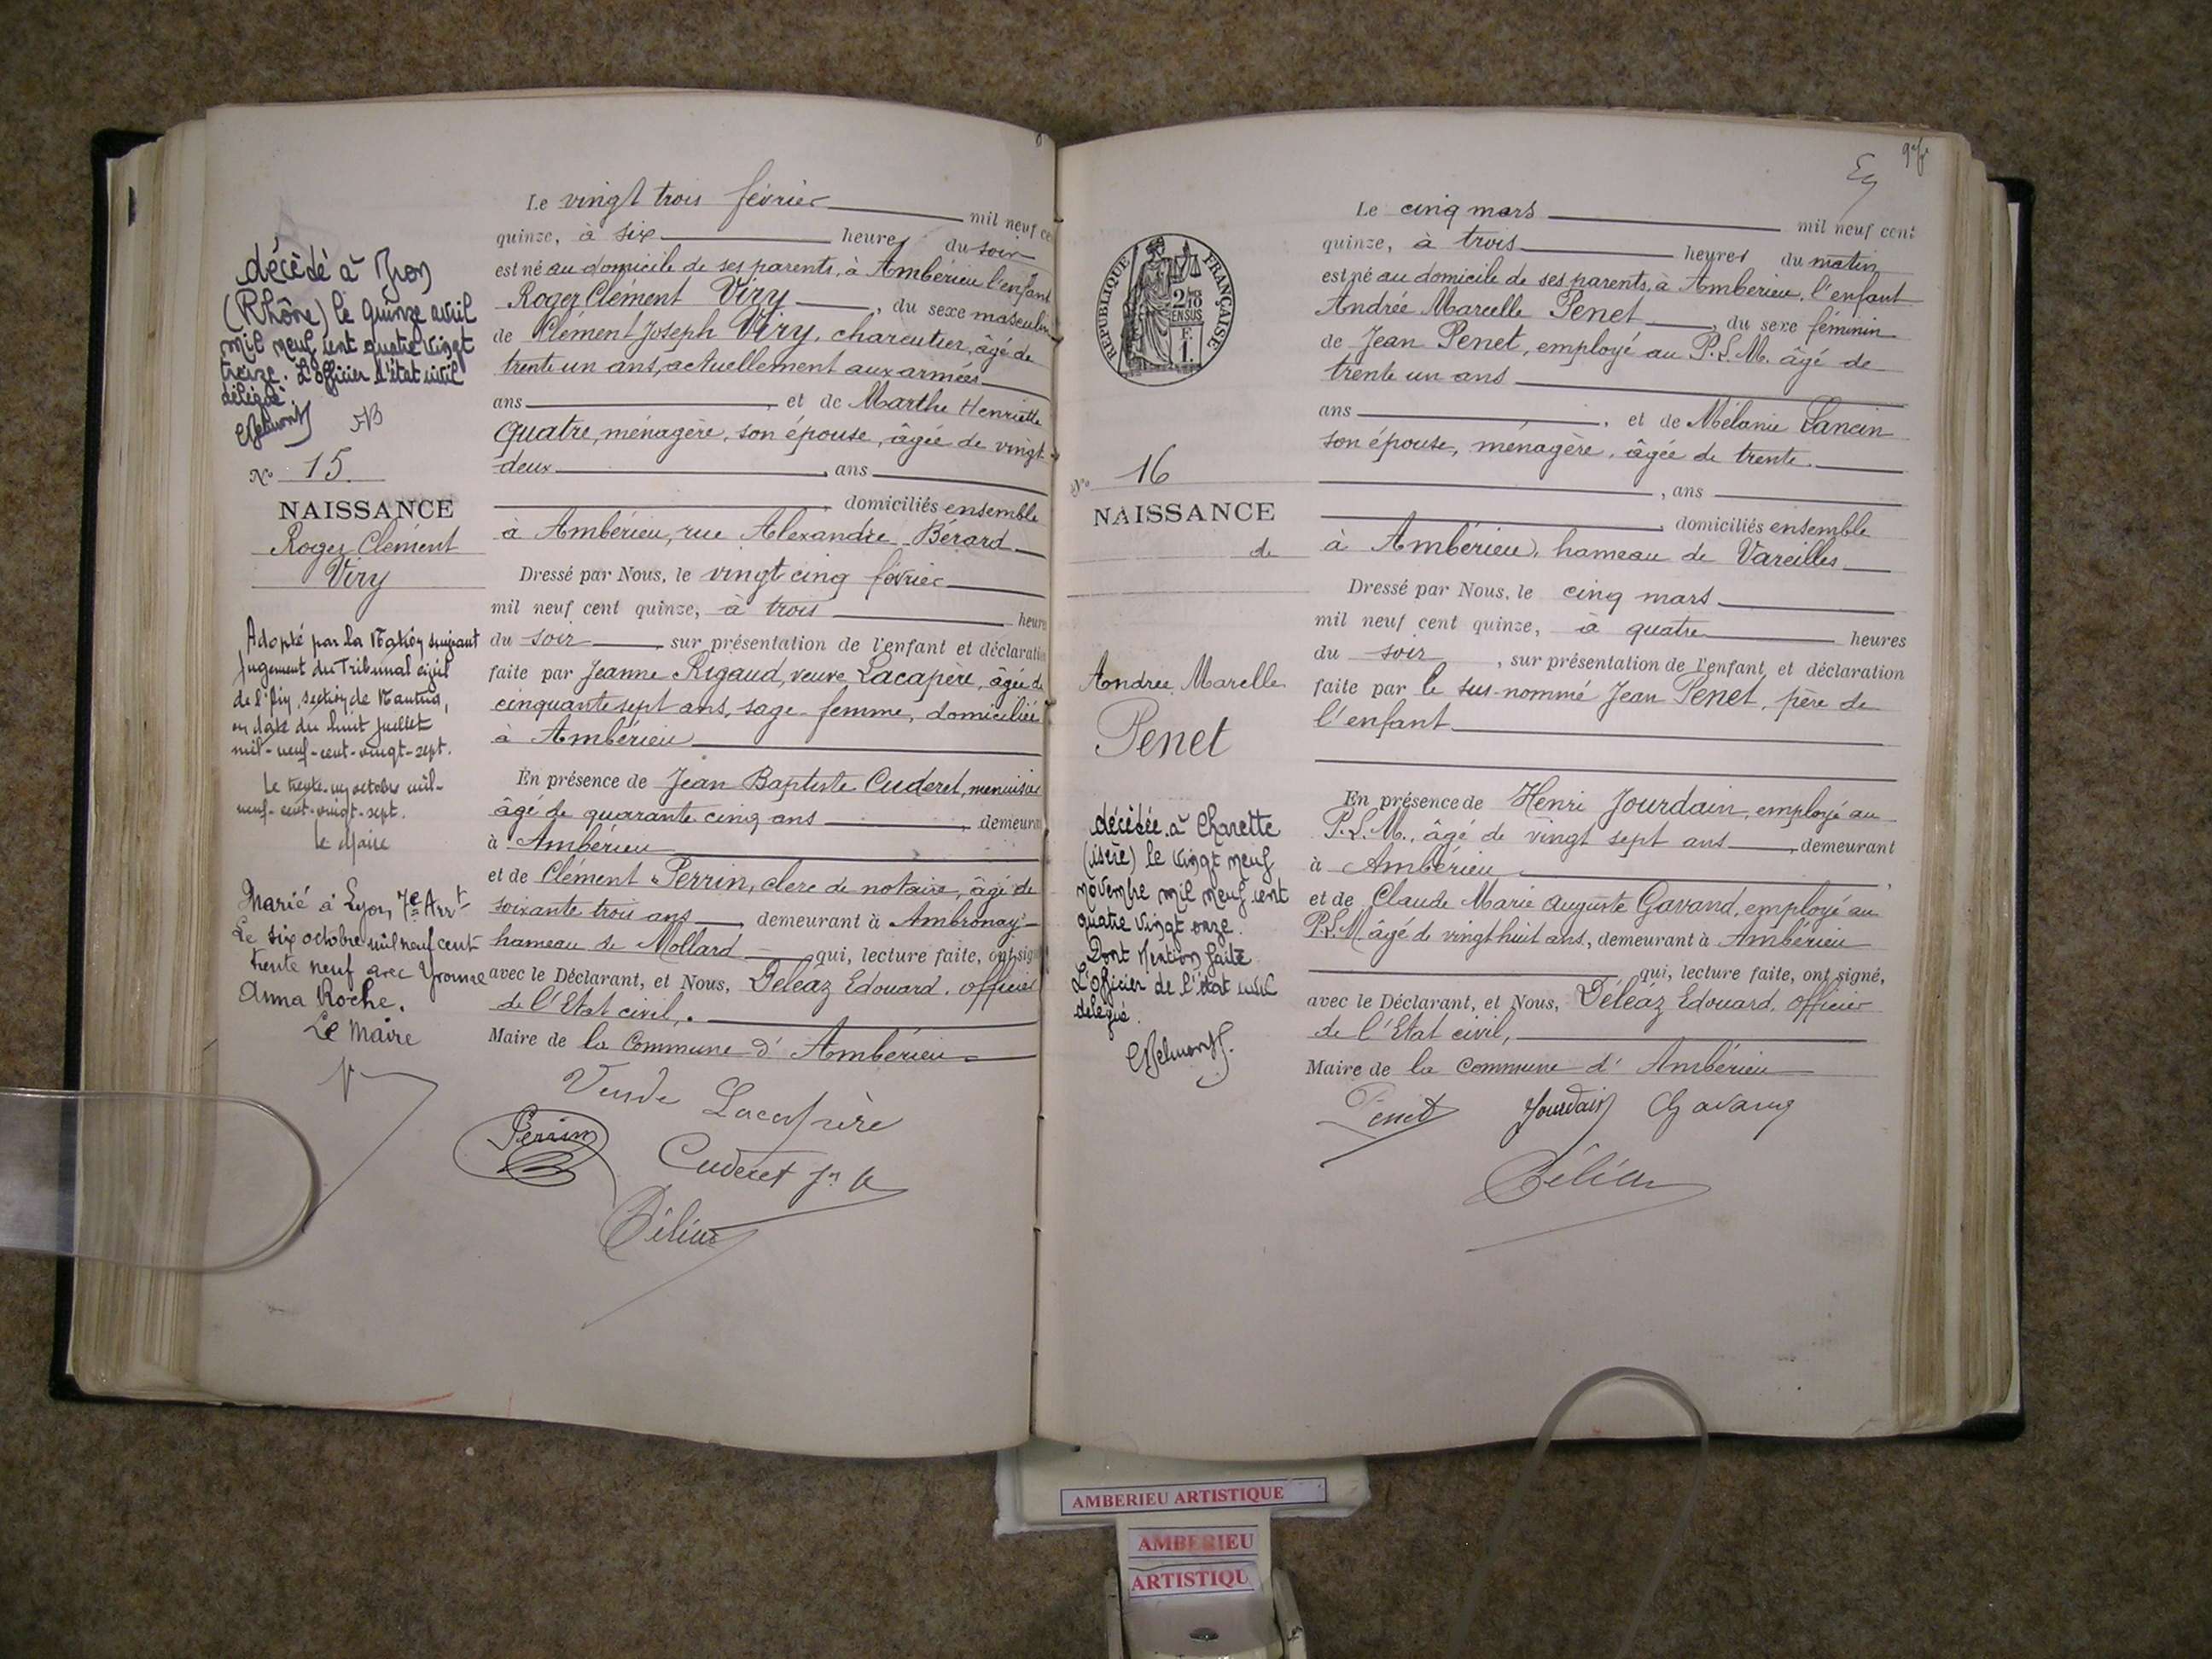 décédé à
(Rhône) le quinze avril
mil neuf cent quatre vingt
treize. L'officier d'état civil
délégué.
N° 15
NAISSANCE
Roger Clément
Viry
Adopté par la Nation suivant
jugement du Tribunal civil
de l'Ain, section de Nantua,
en date du huit juillet
mil-neuf-cent-vingt-sept.
Le trente-un octobre mil-
neuf-cent-vingt-sept.
Le Maire
Marié à Lyon, 7e Arrt
Le six octobre mil neuf cent
trente neuf avec Yvonne
Anna Roche.
Le Maire
Le vingt trois février mil neuf ce
quinze, à six heures du soir
est né au domicile de ses parents, à Ambérieu l'enfant
Roger Clément Viry, du sexe masculin
de Clément Joseph Viry, charcutier, âgé de
trente un ans, actuellement aux armées
ans et de Marthe Henriette
Quatre, ménagère, son épouse, âgée de vingt
deux, ans
, domiciliés ensemble
à Ambérieu, rue Alexandre Bérard
Dressé par Nous, le vingt cinq février
mil neuf cent quinze, à trois heure
du soir, sur présentation de l'enfant et déclaration
faite par Jeanne Rigaud, veuve Lacapère, âgée de
cinquante sept ans, sage-femme, domiciliée
à Ambérieu
En présence de Jean Baptiste Cuderet, menuisier
âgé de quarante cinq ans, demeurant
à Ambérieu
et de Clément Perrin, clerc de notaire, âgé de
soixante trois ans, demeurant à Ambronay
hameau de Mollard qui, lecture faite, ont sig
avec le Déclarant, et Nous, Déléaz Edouard, officier
de l'Etat civil,
Maire de la Commune d'Ambérieu
Veuve Lacapère
Perrin
Cuderet
REPUBLIQUE FRANÇAISE
N° 16
NAISSANCE
de
Andrée Marcelle
Penet
décédée à Charette
(isère) le vingt neuf
novembre mil neuf cent
quatre vingt onze.
Dont Mention faite
L'officier de l'état civil
délégué.
Le cinq mars mil neuf cent
quinze, à trois heures du matin
est né au domicile de ses parents, à Ambérieu, l'enfant
Andrée Marcelle Penet, du sexe féminin
de Jean Penet, employé au P.L.M. âgé de
trente un ans
ans, et de Mélanie Lancin
son épouse, ménagère, âgée de trente
, ans
, domiciliés ensemble
à Ambérieu, hameau de Vareilles
Dressé par Nous, le cinq mars
mil neuf cent quinze, à quatre heures
du soir, sur présentation de l'enfant et déclaration
faite par le sus-nommé Jean Penet, père de
l'enfant
En présence de Henri Jourdain, employé au
P.L.M., âgé de vingt sept ans, demeurant
à Ambérieu,
et de Claude Marie Auguste Gavand, employé au
P.L.M. âgé de vingt huit ans, demeurant à Ambérieu
qui, lecture faite, ont signé,
avec le Déclarant, et Nous, Déléaz Edouard, Officier
de l'Etat civil,
Maire de la Commune d'Ambérieu
Penet Jourdain Gavand
AMBERIEU ARTISTIQUE
AMBERIEU
ARTISTIQU